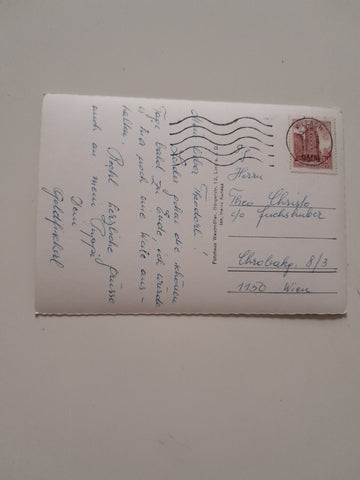 Mein lieber Theodorl!
Leider gehen die schönen
Tage bald zu Ende, ich würde
es hier noch eine Weile aus-
halten. Recht herzliche Grüsse
auch an mein Puppi
Dein
Goldfischerl
Herrn
Theo Christo
c/o Fuchshuber
Chrobakg. 8/3
1150 Wien